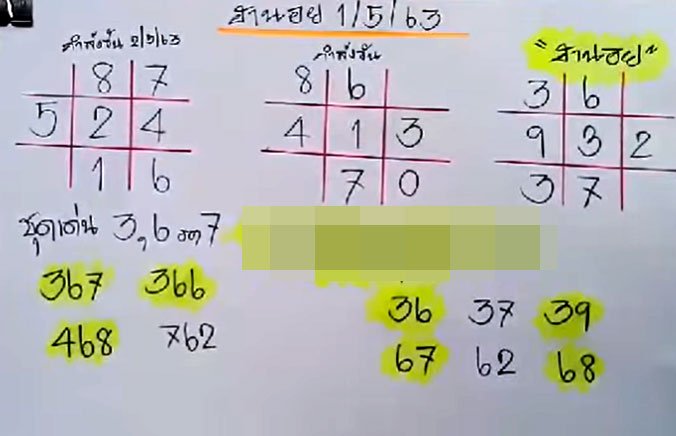 ฮานอย 1/5/63
กำลังวัน 2/5/63
8 7
5 2 4
1 6
กำลังวัน
8 6
4 1 3
7 0
"ฮานอย"
3 6
9 3 2
3 7
ชุดเด่น 3,6 7
367 366
468 762
36 37 39
67 62 68